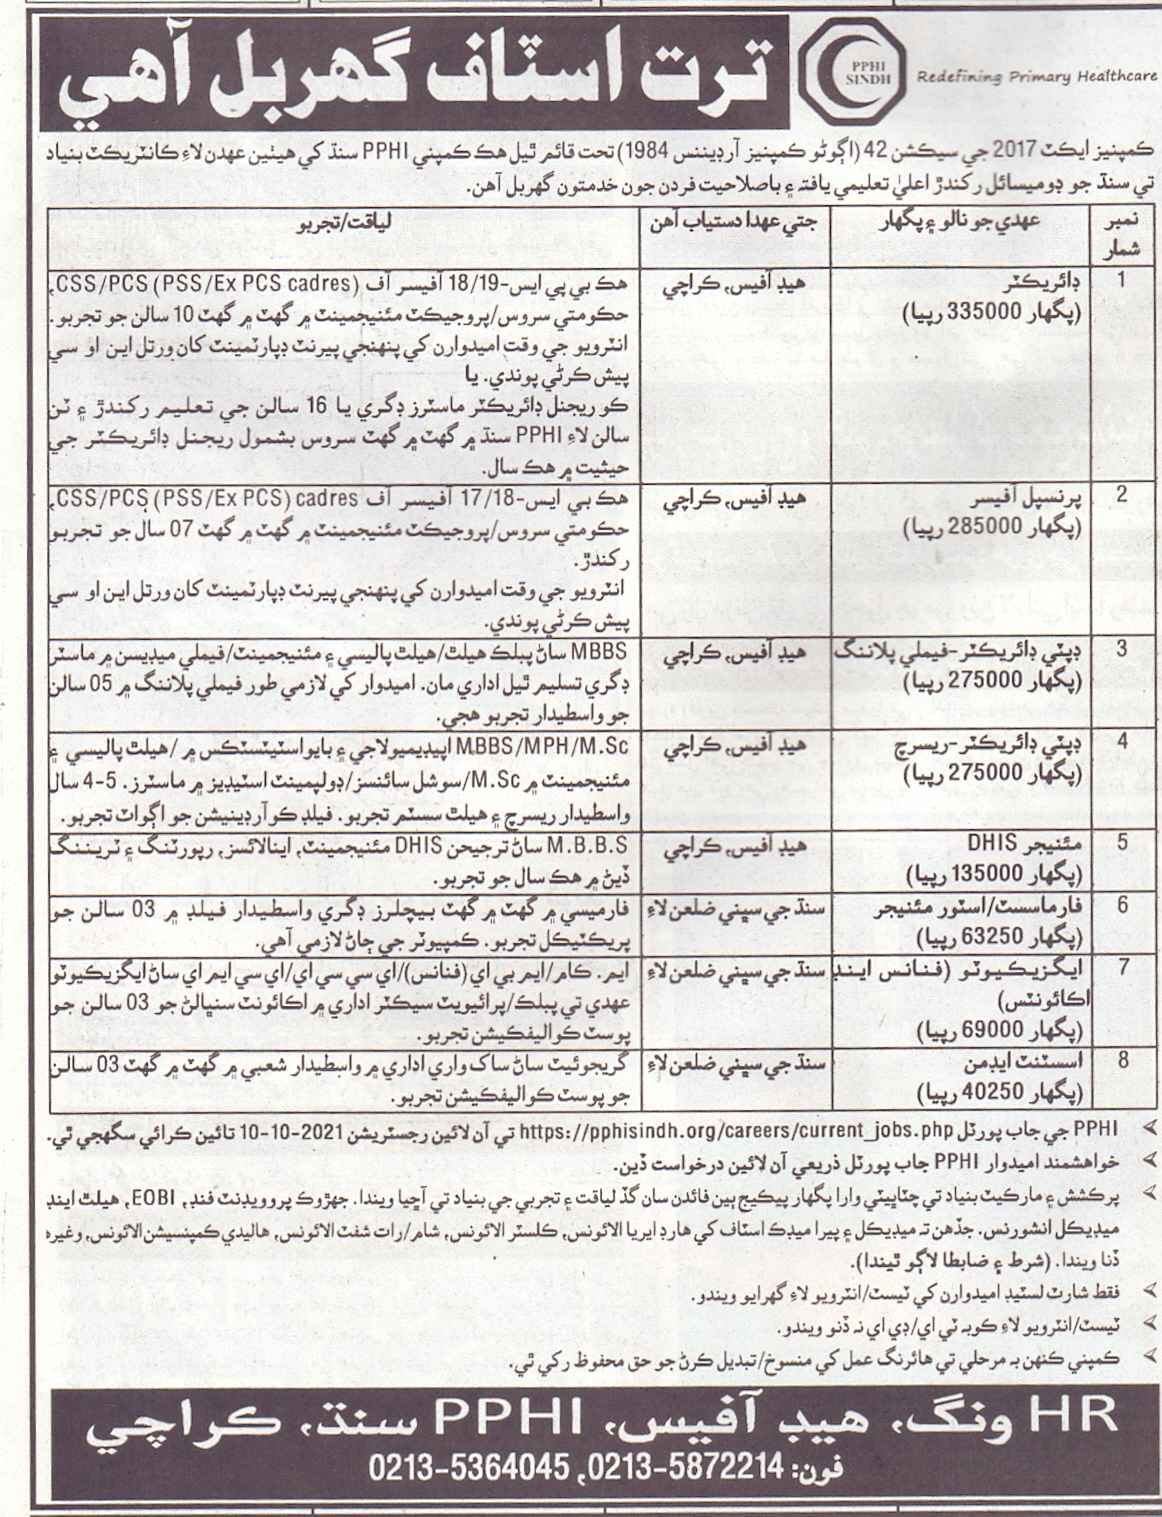 ترت اسٽاف گهربل آهي
PPHI
SINDH
Redefining Primary Healthcare
ڪمپنيز ايڪٽ 2017 جي سيڪشن 42 (اڳوڻو ڪمپنيز آرڊيننس 1984) تحت قائم ٿيل هڪ ڪمپني PPHI سنڌ کي هيٺين عهدن لاءِ ڪانٽريڪٽ بنياد
تي سنڌ جو ڊوميسائل رکندڙ اعليٰ تعليمي يافته ۽ باصلاحيت فردن جون خدمتون گهربل آهن.
نمبر شمار
عهدي جو نالو ۽ پگهار
جتي عهدا دستياب آهن
لياقت/تجربو
1
ڊائريڪٽر
(پگهار 335000 رپيا)
هيڊ آفيس، ڪراچي
هڪ بي پي ايس-18/19 آفيسر آف CSS/PCS (PSS/Ex PCS cadres)،
حڪومتي سروس/پروجيڪٽ مئنيجمينٽ ۾ گهٽ ۾ گهٽ 10 سالن جو تجربو.
انٽرويو جي وقت اميدوارن کي پنهنجي پيرنٽ ڊپارٽمينٽ کان ورتل اين او سي
پيش ڪرڻي پوندي. يا
ڪو ريجنل ڊائريڪٽر ماسٽرز ڊگري يا 16 سالن جي تعليم رکندڙ ۽ ٽن
سالن لاءِ PPHI سنڌ ۾ گهٽ ۾ گهٽ سروس بشمول ريجنل ڊائريڪٽر جي
حيثيت ۾ هڪ سال.
2
پرنسپل آفيسر
(پگهار 285000 رپيا)
هيڊ آفيس، ڪراچي
هڪ بي ايس-17/18 آفيسر آف CSS/PCS (PSS/Ex PCS) cadres،
حڪومتي سروس/پروجيڪٽ مئنيجمينٽ ۾ گهٽ ۾ گهٽ 07 سال جو تجربو
رکندڙ.
انٽرويو جي وقت اميدوارن کي پنهنجي پيرنٽ ڊپارٽمينٽ کان ورتل اين او سي
پيش ڪرڻي پوندي.
3
ڊپٽي ڊائريڪٽر-فيملي پلاننگ
(پگهار 275000 رپيا)
هيڊ آفيس، ڪراچي
MBBS ساڻ پبلڪ هيلٿ/هيلٿ پاليسي ۽ مئنيجمينٽ/فيملي ميڊيسن ۾ ماسٽر
ڊگري تسليم ٿيل اداري مان. اميدوار کي لازمي طور فيملي پلاننگ ۾ 05 سالن
جو واسطيدار تجربو هجي.
4
ڊپٽي ڊائريڪٽر-ريسرچ
(پگهار 275000 رپيا)
هيڊ آفيس، ڪراچي
M.BBS/MPH/M.Sc اپيڊيميولاجي ۽ بايواسٽيٽسٽڪس ۾ /هيلٿ پاليسي ۽
مئنيجمينٽ ۾ M.Sc/سوشل سائنسز/ڊولپمينٽ اسٽيڊيز ۾ ماسٽرز. 5-4 سال
واسطيدار ريسرچ ۽ هيلٿ سسٽم تجربو. فيلڊ ڪوآرڊينيشن جو اڳواٽ تجربو.
5
مئنيجر DHIS
(پگهار 135000 رپيا)
هيڊ آفيس، ڪراچي
M.B.B.S ساڻ ترجيحن DHIS مئنيجمينٽ، اينالائسز، رپورٽنگ ۽ ٽريننگ
ڏيڻ ۾ هڪ سال جو تجربو.
6
فارماسسٽ/اسٽور مئنيجر
(پگهار 63250 رپيا)
سنڌ جي سڀني ضلعن لاءِ
فارميسي ۾ گهٽ ۾ گهٽ بيچلرز ڊگري واسطيدار فيلڊ ۾ 03 سالن جو
پريڪٽيڪل تجربو. ڪمپيوٽر جي ڄاڻ لازمي آهي.
7
ايگزيڪيوٽو (فنانس اينڊ
اڪائونٽس)
(پگهار 69000 رپيا)
سنڌ جي سڀني ضلعن لاءِ
ايم. ڪام/ايم بي اي (فنانس)/اي سي سي اي/اي سي ايم اي ساڻ ايگزيڪيوٽو
عهدي تي پبلڪ/پرائيويٽ سيڪٽر اداري ۾ اڪائونٽ سنڀالڻ جو 03 سالن جو
پوسٽ ڪواليفڪيشن تجربو.
8
اسسٽنٽ ايڊمن
(پگهار 40250 رپيا)
سنڌ جي سڀني ضلعن لاءِ
گريجوئيٽ ساڻ ساک واري اداري ۾ واسطيدار شعبي ۾ گهٽ ۾ گهٽ 03 سالن
جو پوسٽ ڪواليفڪيشن تجربو.
PPHI جي جاب پورٽل https://pphisindh.org/careers/current_jobs.php تي آن لائين رجسٽريشن 10-10-2021 تائين ڪرائي سگهجي ٿي.
خواهشمند اميدوار PPHI جاب پورٽل ذريعي آن لائين درخواست ڏين.
پرڪشش ۽ مارڪيٽ بنياد تي چٽاڀيٽي وارا پگهار پيڪيج ٻين فائدن سان گڏ لياقت ۽ تجربي جي بنياد تي آڇيا ويندا. جهڙوڪ پروويڊنٽ فنڊ، EOBI، هيلٿ اينڊ
ميڊيڪل انشورنس. جڏهن ته ميڊيڪل ۽ پيرا ميڊڪ اسٽاف کي هارڊ ايريا الائونس، ڪلسٽر الائونس، شام/رات شفٽ الائونس، هاليڊي ڪمپنسيشن الائونس، وغيره
ڏنا ويندا. (شرط ۽ ضابطا لاڳو ٿيندا).
فقط شارٽ لسٽيڊ اميدوارن کي ٽيسٽ/انٽرويو لاءِ گهرايو ويندو.
ٽيسٽ/انٽرويو لاءِ ڪوبه ٽي اي/ڊي اي نه ڏنو ويندو.
ڪمپني ڪنهن به مرحلي تي هائرنگ عمل کي منسوخ/تبديل ڪرڻ جو حق محفوظ رکي ٿي.
HR ونگ، هيڊ آفيس، PPHI سنڌ، ڪراچي
فون: 0213-5872214، 0213-5364045